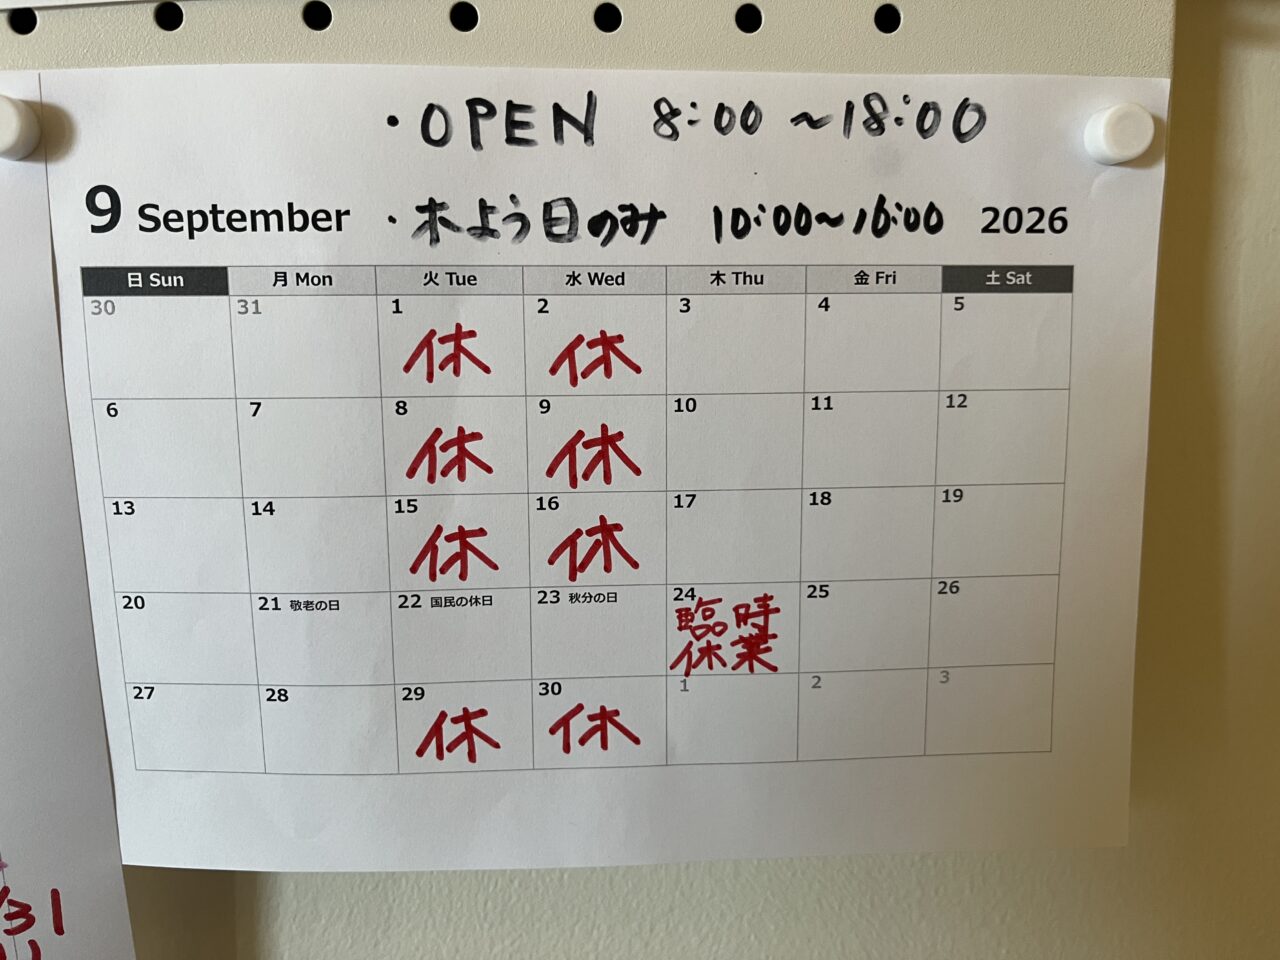 ・OPEN 8:00〜18:00
9 September ・木よう日のみ 10:00〜16:00 2026
日 Sun 月 Mon 火 Tue 水 Wed 木 Thu 金 Fri 土 Sat
30 31 1 2 3 4 5
休 休
6 7 8 9 10 11 12
休 休
13 14 15 16 17 18 19
休 休
20 21 敬老の日 22 国民の休日 23 秋分の日 24 25 26
臨時
休業
27 28 29 30 1 2 3
休 休
/31